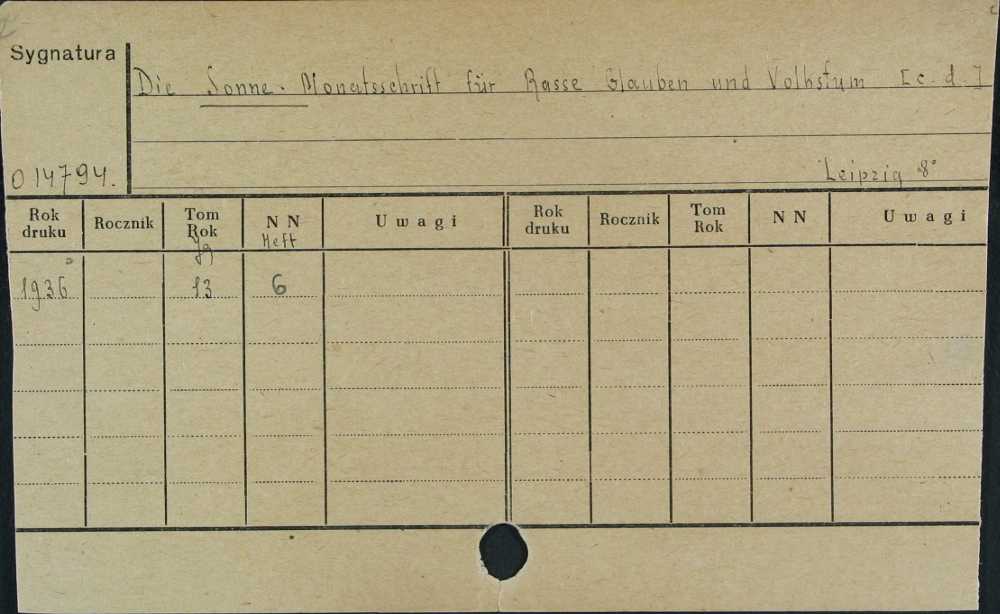 Sygnatura
Die Sonne. Monatsschrift für Rasse Glauben und Volkstum [c. d.]
O 14794.
Leipzig 8°
Rok druku Rocznik Tom Rok NN Uwagi Rok druku Rocznik Tom Rok NN Uwagi
Jg Heft
1936 13 6